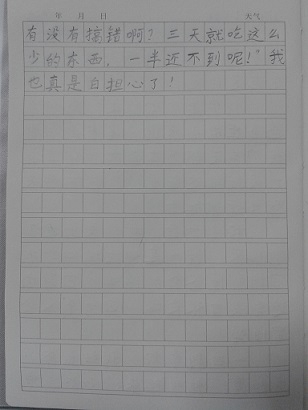 年 月 日 天气
有没有搞错啊?三天就吃这么
少的东西,一半还不到呢!"我
也真是白担心了?